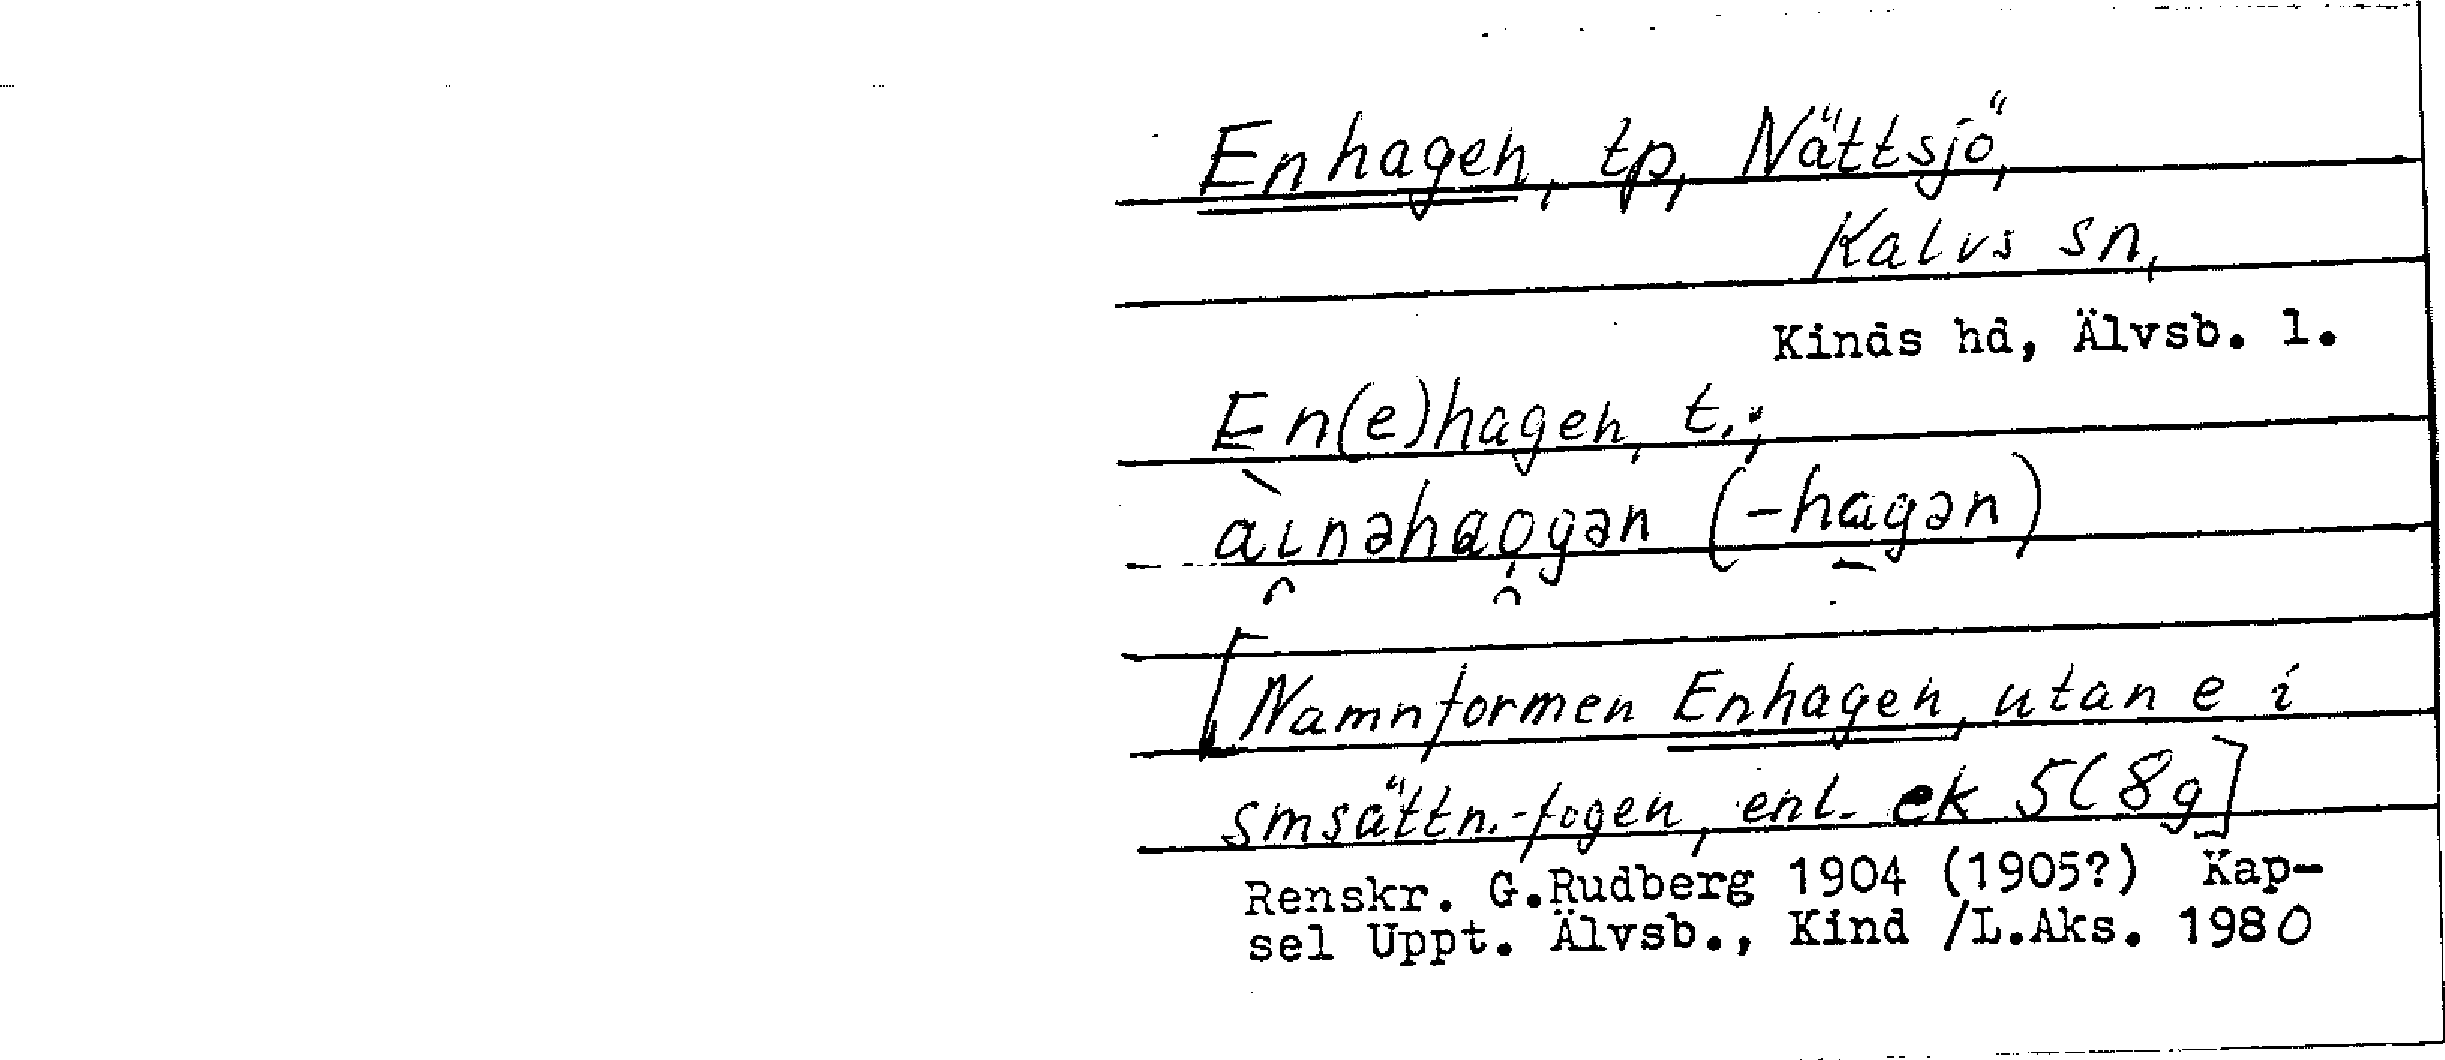 Enhagen, tp, Nättsjö,
Kalvs sn,
Kinds hd, Älvsb. l.
En(e)hagen, t.;
àı̯nəhao̯gən (-ha̱gən)
[Namnformen Enhagen, utan e i
smsättn.-fogen, enl. ek 5(8g]
Renskr. G.Rudberg 1904 (1905?) Kap-
sel Uppt. Älvsb., Kind /L.Aks. 1980